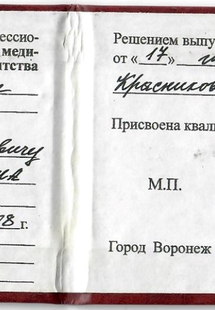 ессио-
меди-
нтства
вичу
8 г.
Решением выпу
от «17»
Красников
Присвоена квали
М.П.
Город Воронеж